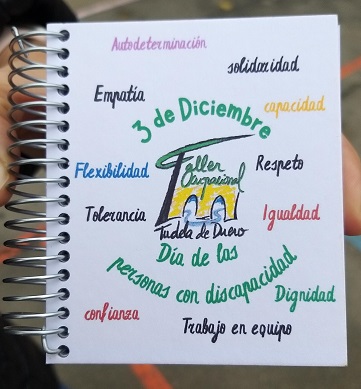 Autodeterminación
solidaridad
Empatía
capacidad
3 de Diciembre
Flexibilidad
Taller
Ocupacional
Respeto
Tolerancia
Igualdad
Tudela de Duero
Día de las
personas con discapacidad
Dignidad
confianza
Trabajo en equipo